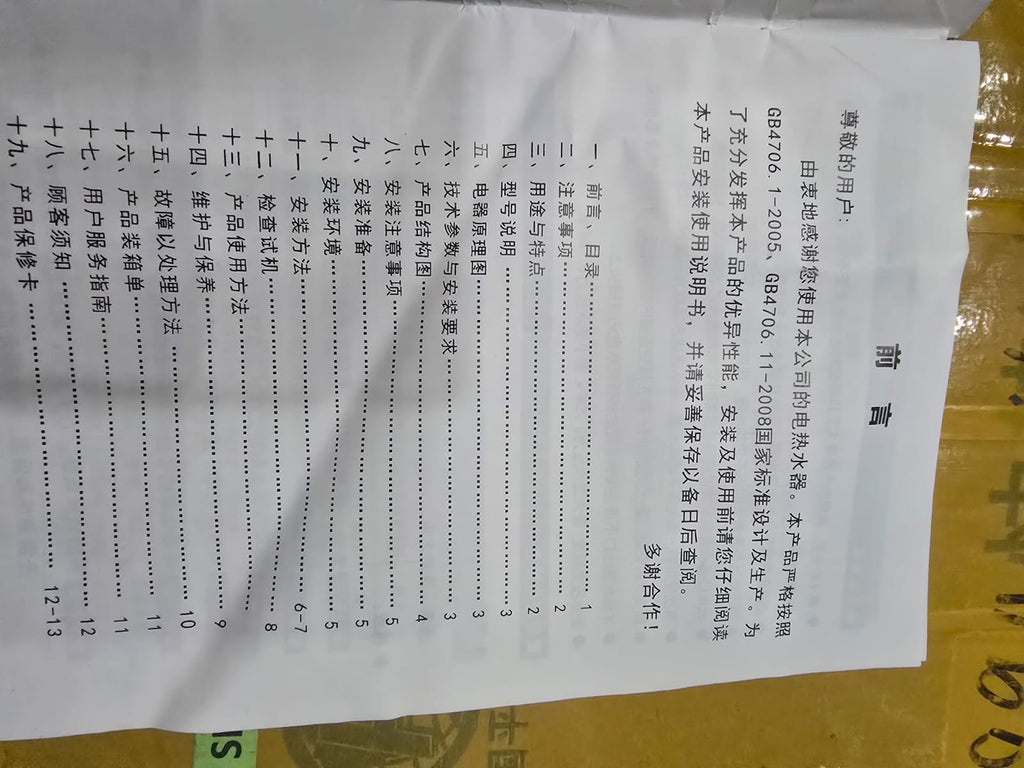 前 言
尊敬的用户：
由衷地感谢您使用本公司的电热水器。本产品严格按照
GB4706.1-2005、GB4706.11-2008国家标准设计及生产。为
了充分发挥本产品的优异性能，安装及使用前请您仔细阅读
本产品安装使用说明书，并请妥善保存以备日后查阅。
多谢合作！
一、前言、目录…………………………1
二、注意事项…………………………2
三、用途与特点…………………………2
四、型号说明…………………………3
五、电器原理图…………………………3
六、技术参数与安装要求…………………………3
七、产品结构图…………………………4
八、安装注意事项…………………………5
九、安装准备…………………………5
十、安装环境…………………………5
十一、安装方法…………………………6-7
十二、检查试机…………………………8
十三、产品使用方法…………………………
十四、维护与保养…………………………9
十五、故障以处理方法…………………………10
十六、产品装箱单…………………………11
十七、用户服务指南…………………………11
十八、顾客须知…………………………12
十九、产品保修卡…………………………12-13